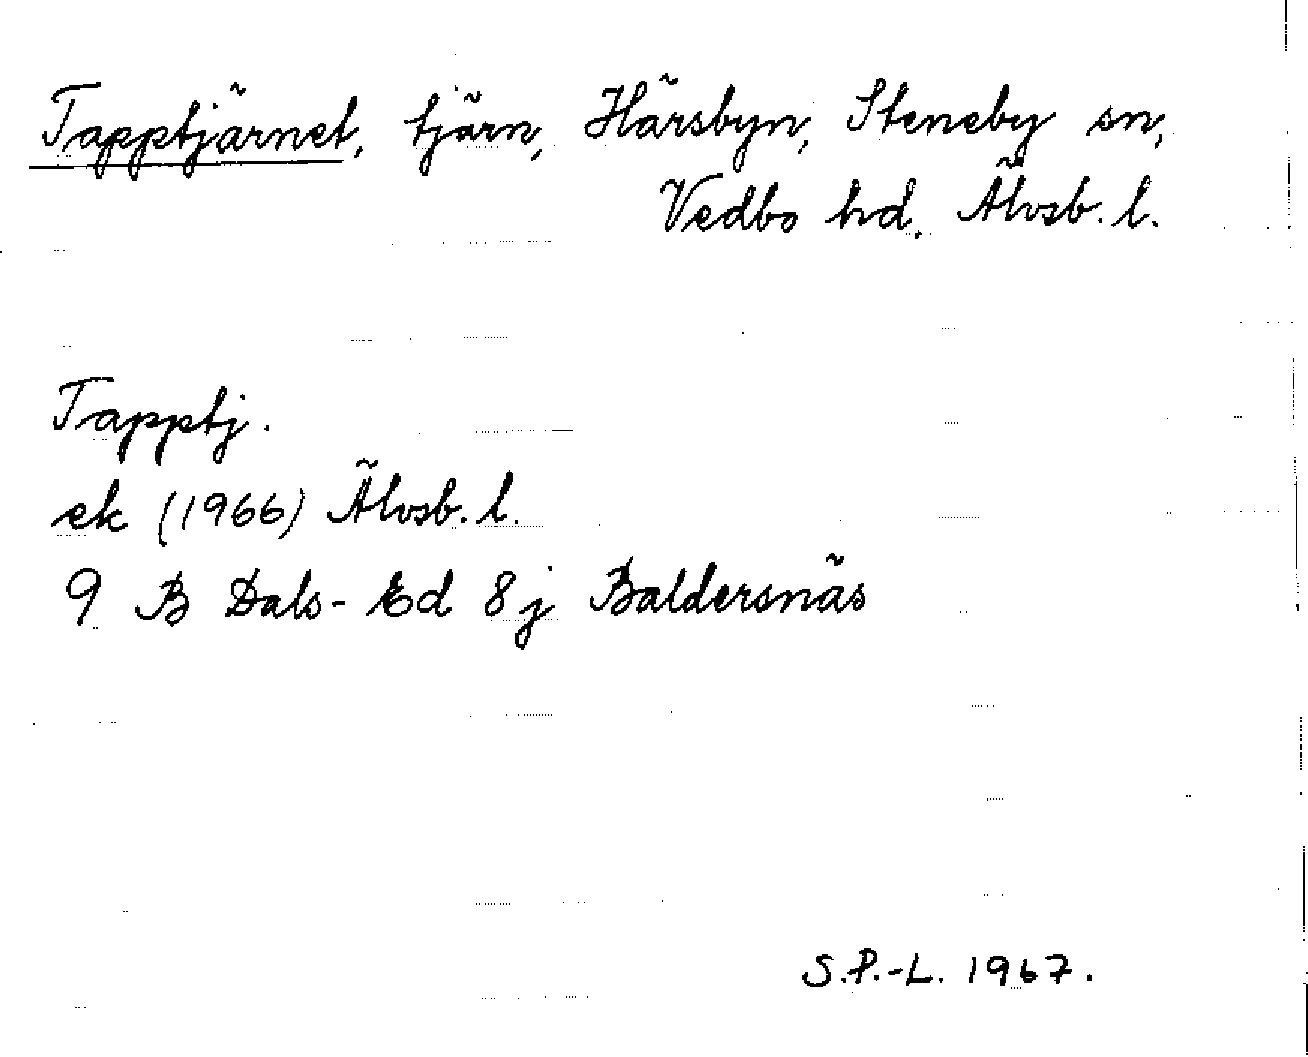 Tapptjärnet, tjärn, Härsbyn, Steneby sn,
Vedbo hd. Älvsb. l.
Tapptj.
ek (1966) Älvsb. l.
9 B Dals-Ed 8j Baldersnäs
S.P.-L. 1967.